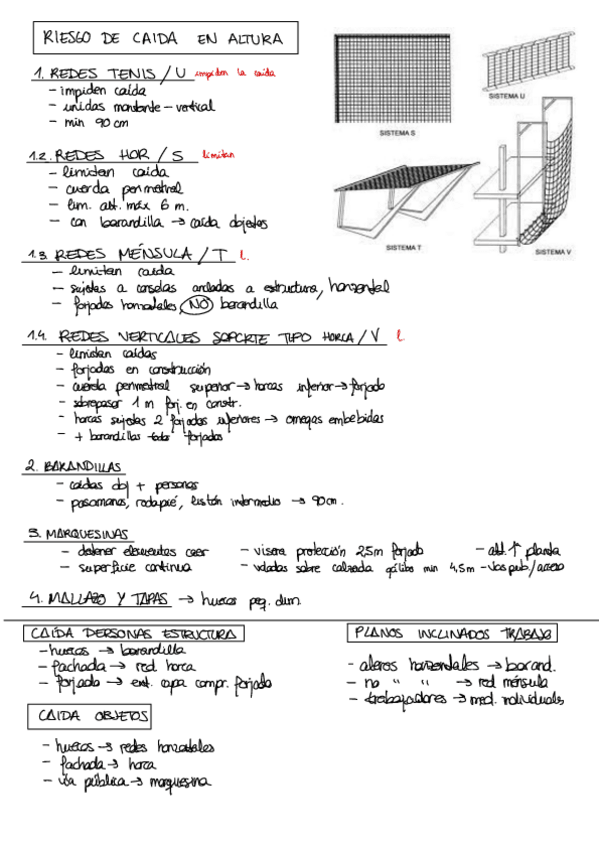 RIESGO DE CAIDA EN ALTURA
1. REDES TENIS / U impiden la caida
- impiden caída
- unidas montante - vertical
- min 90 cm
1.2. REDES HOR / S limitan
- limitan caida
- cuerda perimetral
- lim. alt. máx 6 m.
- con barandilla → caída objetos
1.3. REDES MÉNSULA / T l.
- limitan caida
- sujetas a carcelas ancladas a estructura, horizontal
- forjados horizontales, NO barandilla
1.4. REDES VERTICALES SOPORTE TIPO HORCA / V l
- limitan caídas
- forjados en construcción
- cuerda perimetral superior → horcas inferior → forjado
- sobrepasar 1 m forj. en constr.
- horcas sujetas 2 forjados inferiores → omegas embebidas
- + barandillas todo forjados
SISTEMA S
SISTEMA U
SISTEMA T
SISTEMA V
2. BARANDILLAS
- caidas obj + personas
- pasamanos, rodapié, listón intermedio → 90 cm.
3. MARQUESINAS
- detener elementos caer - visera protección 2,5 m forjado - alt. ↑ planta
- superficie continua - voladas sobre calzada gálibo min 4,5 m - vías pub/acceso
4. MALLAZO Y TAPAS → huecos peq. dim.
CAÍDA PERSONAS ESTRUCTURA
- huecos → barandilla
- fachada → red horca
- forjado → ext. capa compr. forjado
PLANOS INCLINADOS TRABAJO
- aleros horizontales → barand.
- no " " → red ménsula
- trabajadores → med. individuales
CAIDA OBJETOS
- huecos → redes horizontales
- fachada → horca
- vía pública → marquesina